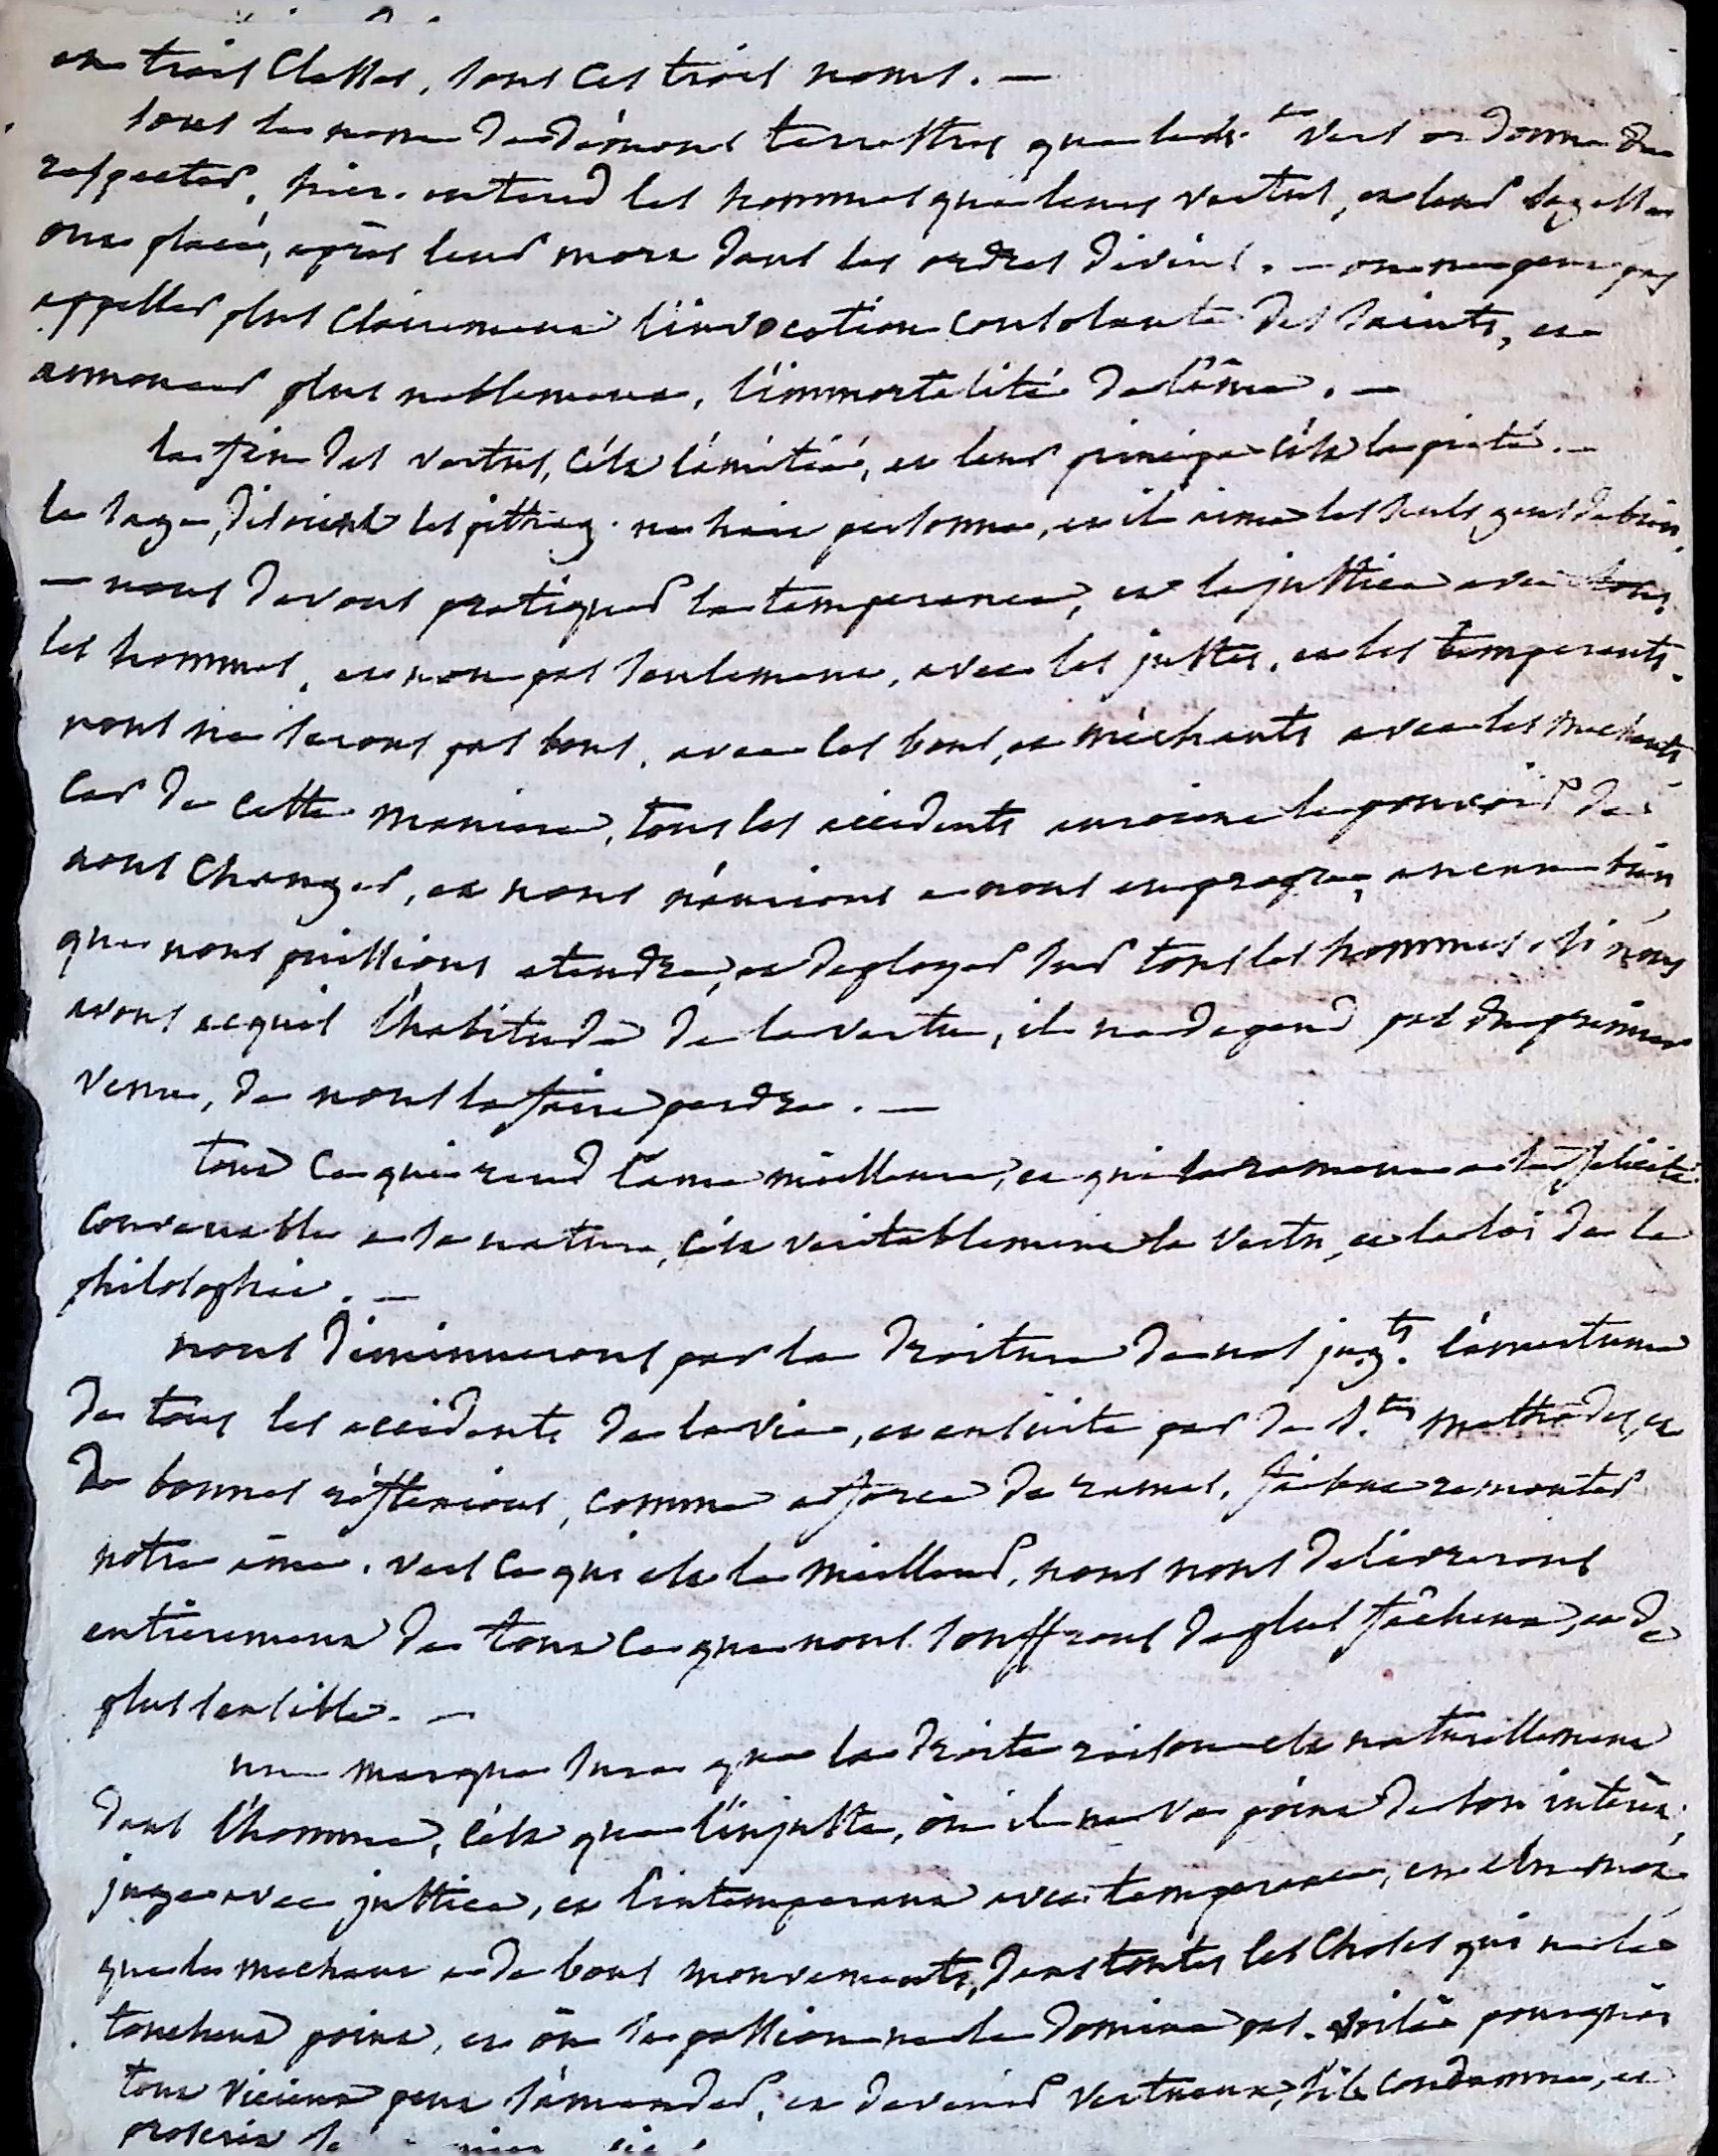 en trois classes, sous ces trois noms. —
sous le nom de demons terrestres que le vers ordonne de
respecter, hier. entend les hommes que leurs vertus, et leur sagesse
ont placé, après leur mort dans les ordres divins. — on ne peut pas
appeller plus clairement l'invocation consolante des saints, et
annoncer plus noblement, l'immortalité de l'âme. —
la fin des vertus, c'est l'amitié, et leur principe c'est la pieté. —
le sage, disoient les pithag. ne hait personne, et il aime les seuls gens de bien.
— nous devons pratiquer la temperance, et la justice avec tous
les hommes, et non pas seulement, avec les justes, et les temperants.
nous ne serons pas bons, avec les bons, et méchants avec les mechants,
car de cette maniere, tous les accidents auroient le pouvoir de
nous changer, et nous n'aurions a nous en propre, aucun bien,
que nous puissions etendre, et deployer sur tous les hommes. si nous
avons acquis l'habitude de la vertu, il ne depend pas du premier
venu, de nous la faire perdre. —
tout ce qui rend l'ame meilleure, et qui la ramene a la felicité
convenable a sa nature, c'est veritablement la vertu, et la loi de la
philosophie. —
nous diminuerons par la droiture de nos jugts. l'amertume
de tous les accidents de la vie, et ensuite par de s.tes methodes, et
de bonnes réflexions, comme a force de rames, faisant remonter
notre âme. vers ce qui est le meilleur, nous nous delivrerons
entièrement de tout ce que nous souffrons de plus fâcheux, et de
plus sensible. —
une marque sure que la droite raison est naturellement
dans l'homme, c'est que l'injuste, où il ne va point de son intérêt,
juge avec justice, et l'intemperant avec temperance, en un mot
que le mechant a de bons mouvements, dans toutes les choses qui ne le
touchent point, et où sa passion ne le domine pas. voilà pourquoi
tout vicieux peut s'amender, et devenir vertueux, s'il condamne, et
proscrit